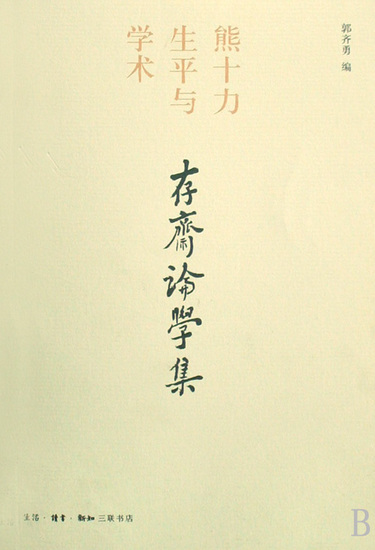 郭齐勇 编
熊十力
生平与
学术
存齋論學集
生活·讀書·新知三联书店
B